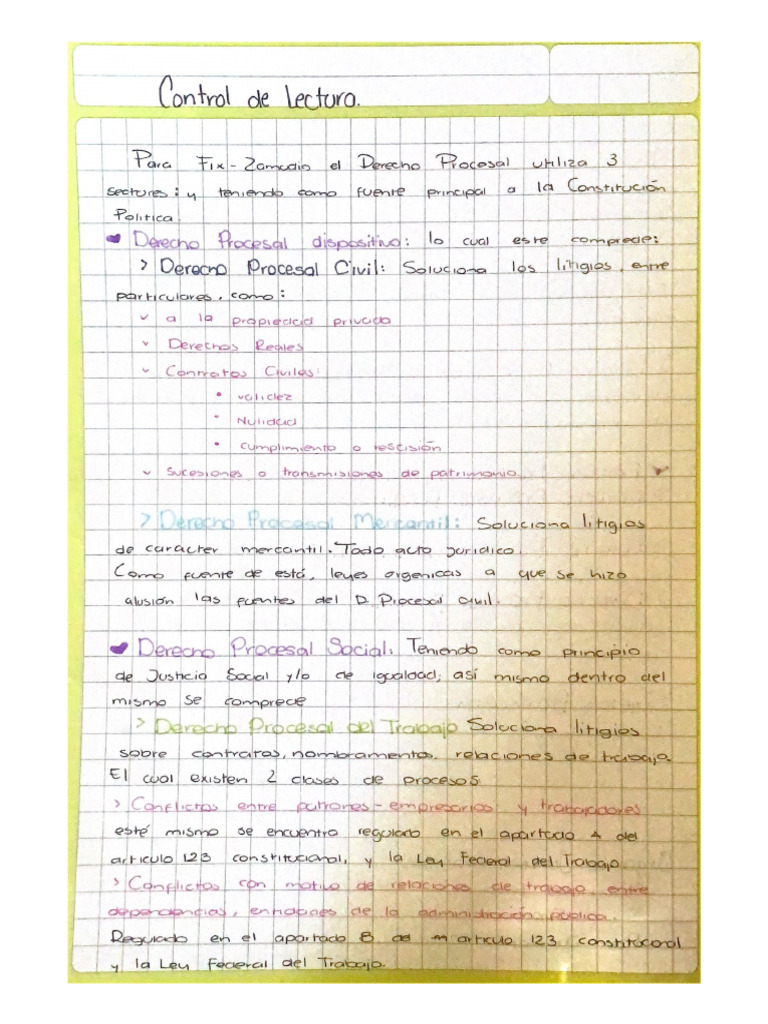 Control de lectura.
Para Fix-Zamudio el Derecho Procesal utiliza 3
sectores: y teniendo como fuente principal a la Constitución
Politica.
Derecho Procesal dispositivo: lo cual este comprede:
> Derecho Procesal Civil: Soluciona los litigios, entre
particulares, como:
a la propiedad privada
Derechos Reales
Contratos Civiles:
• validez
• Nulidad
• cumplimiento o rescisión
Sucesiones o transmisiones de patrimonio.
> Derecho Procesal Mercantil: Soluciona litigios
de caracter mercantil. Todo acto juridico.
Como fuente de está, leyes organicas a que se hizo
alusión las fuentes del D. Procesal civil.
Derecho Procesal Social. Teniendo como principio
de Justicia Social y/o de igualdad, así mismo dentro del
mismo se comprede
> Derecho Procesal del Trabajo Soluciona litigios
sobre contratos, nombramentos, relaciones de trabajo.
El cual existen 2 clases de procesos
> Conflictos entre patrones-empresarios y trabajadores
esté mismo se encuentra regulado en el apartado A del
articulo 123 constitucional, y la Ley Federal del Trabajo.
> Conflictos con motivo de relaciones de trabajo entre
dependencias, entidades de la administración pública.
Regulado en el apartado B articulo 123 constitucional
y la Ley Federal del Trabajo.